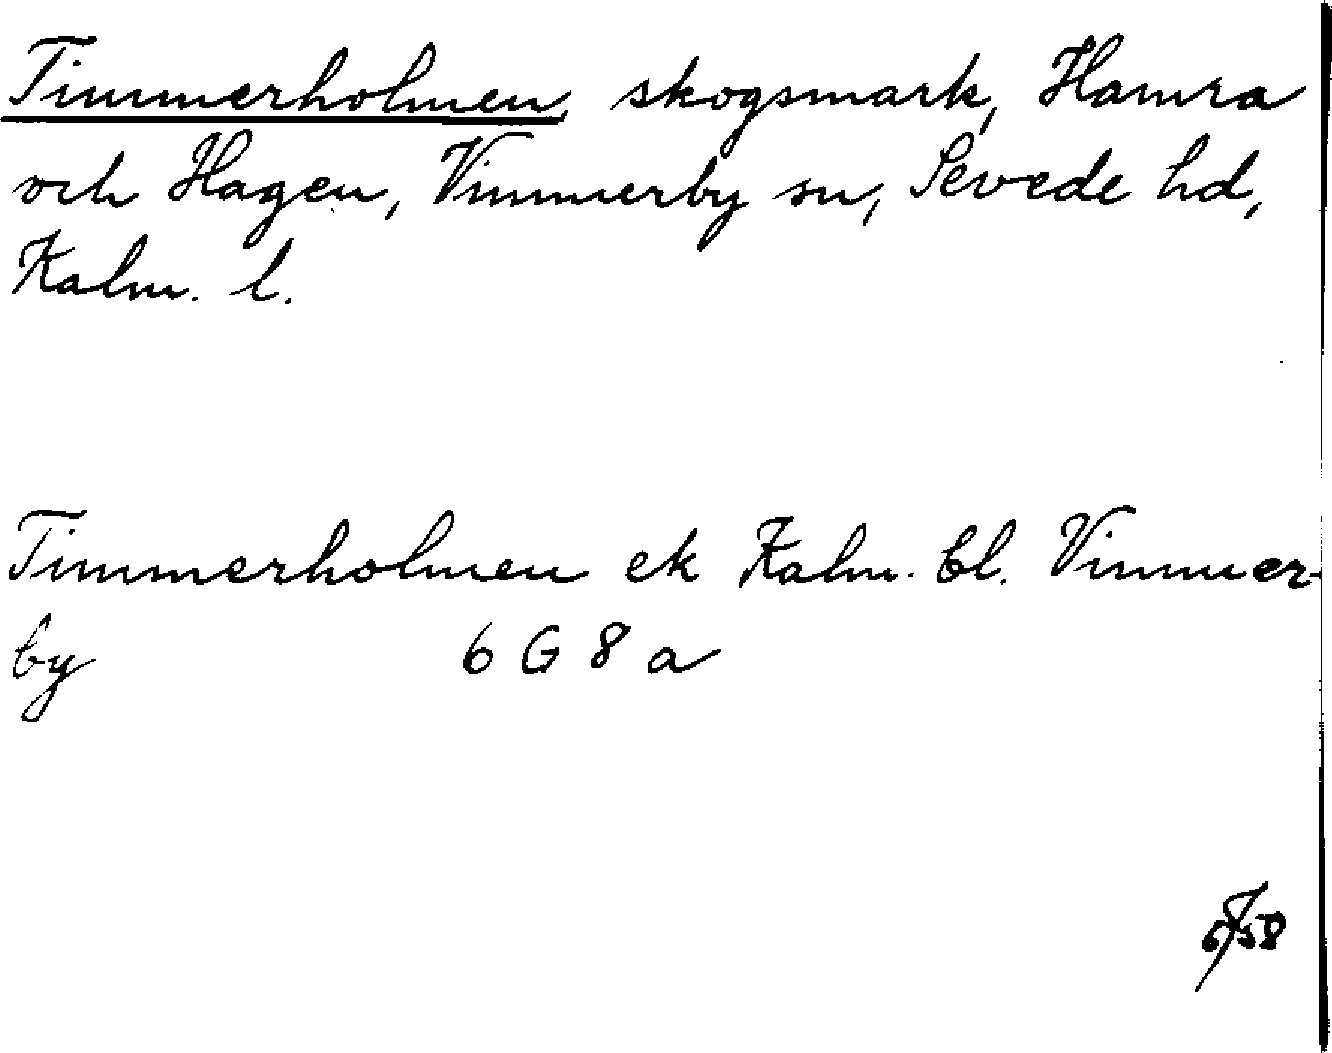 Timmerholmen, skogsmark, Hamra
och Hagen, Vimmerby sn, Sevede hd,
Kalm. l.
Timmerholmen ek Kalm. bl. Vimmer-
by 6 G 8 a